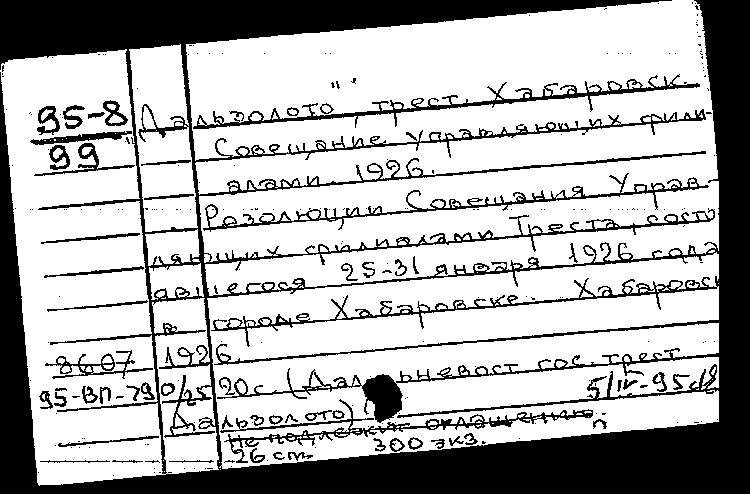 95-8
99
"Дальзолото", трест. Хабаровск.
Совещание управляющих фили-
алами. 1926.
Резолюции Совещания Управ-
ляющих филиалами Треста, состо
явшегося 25-31 января 1926 года
в городе Хабаровске. Хабаровск
8607 1926.
95-ВП-79 0/25 20с. (Дальневост. гос. трест
Дальзолото)
5/IV-95
Не подлежит оглашению.
26 см. 300 экз.